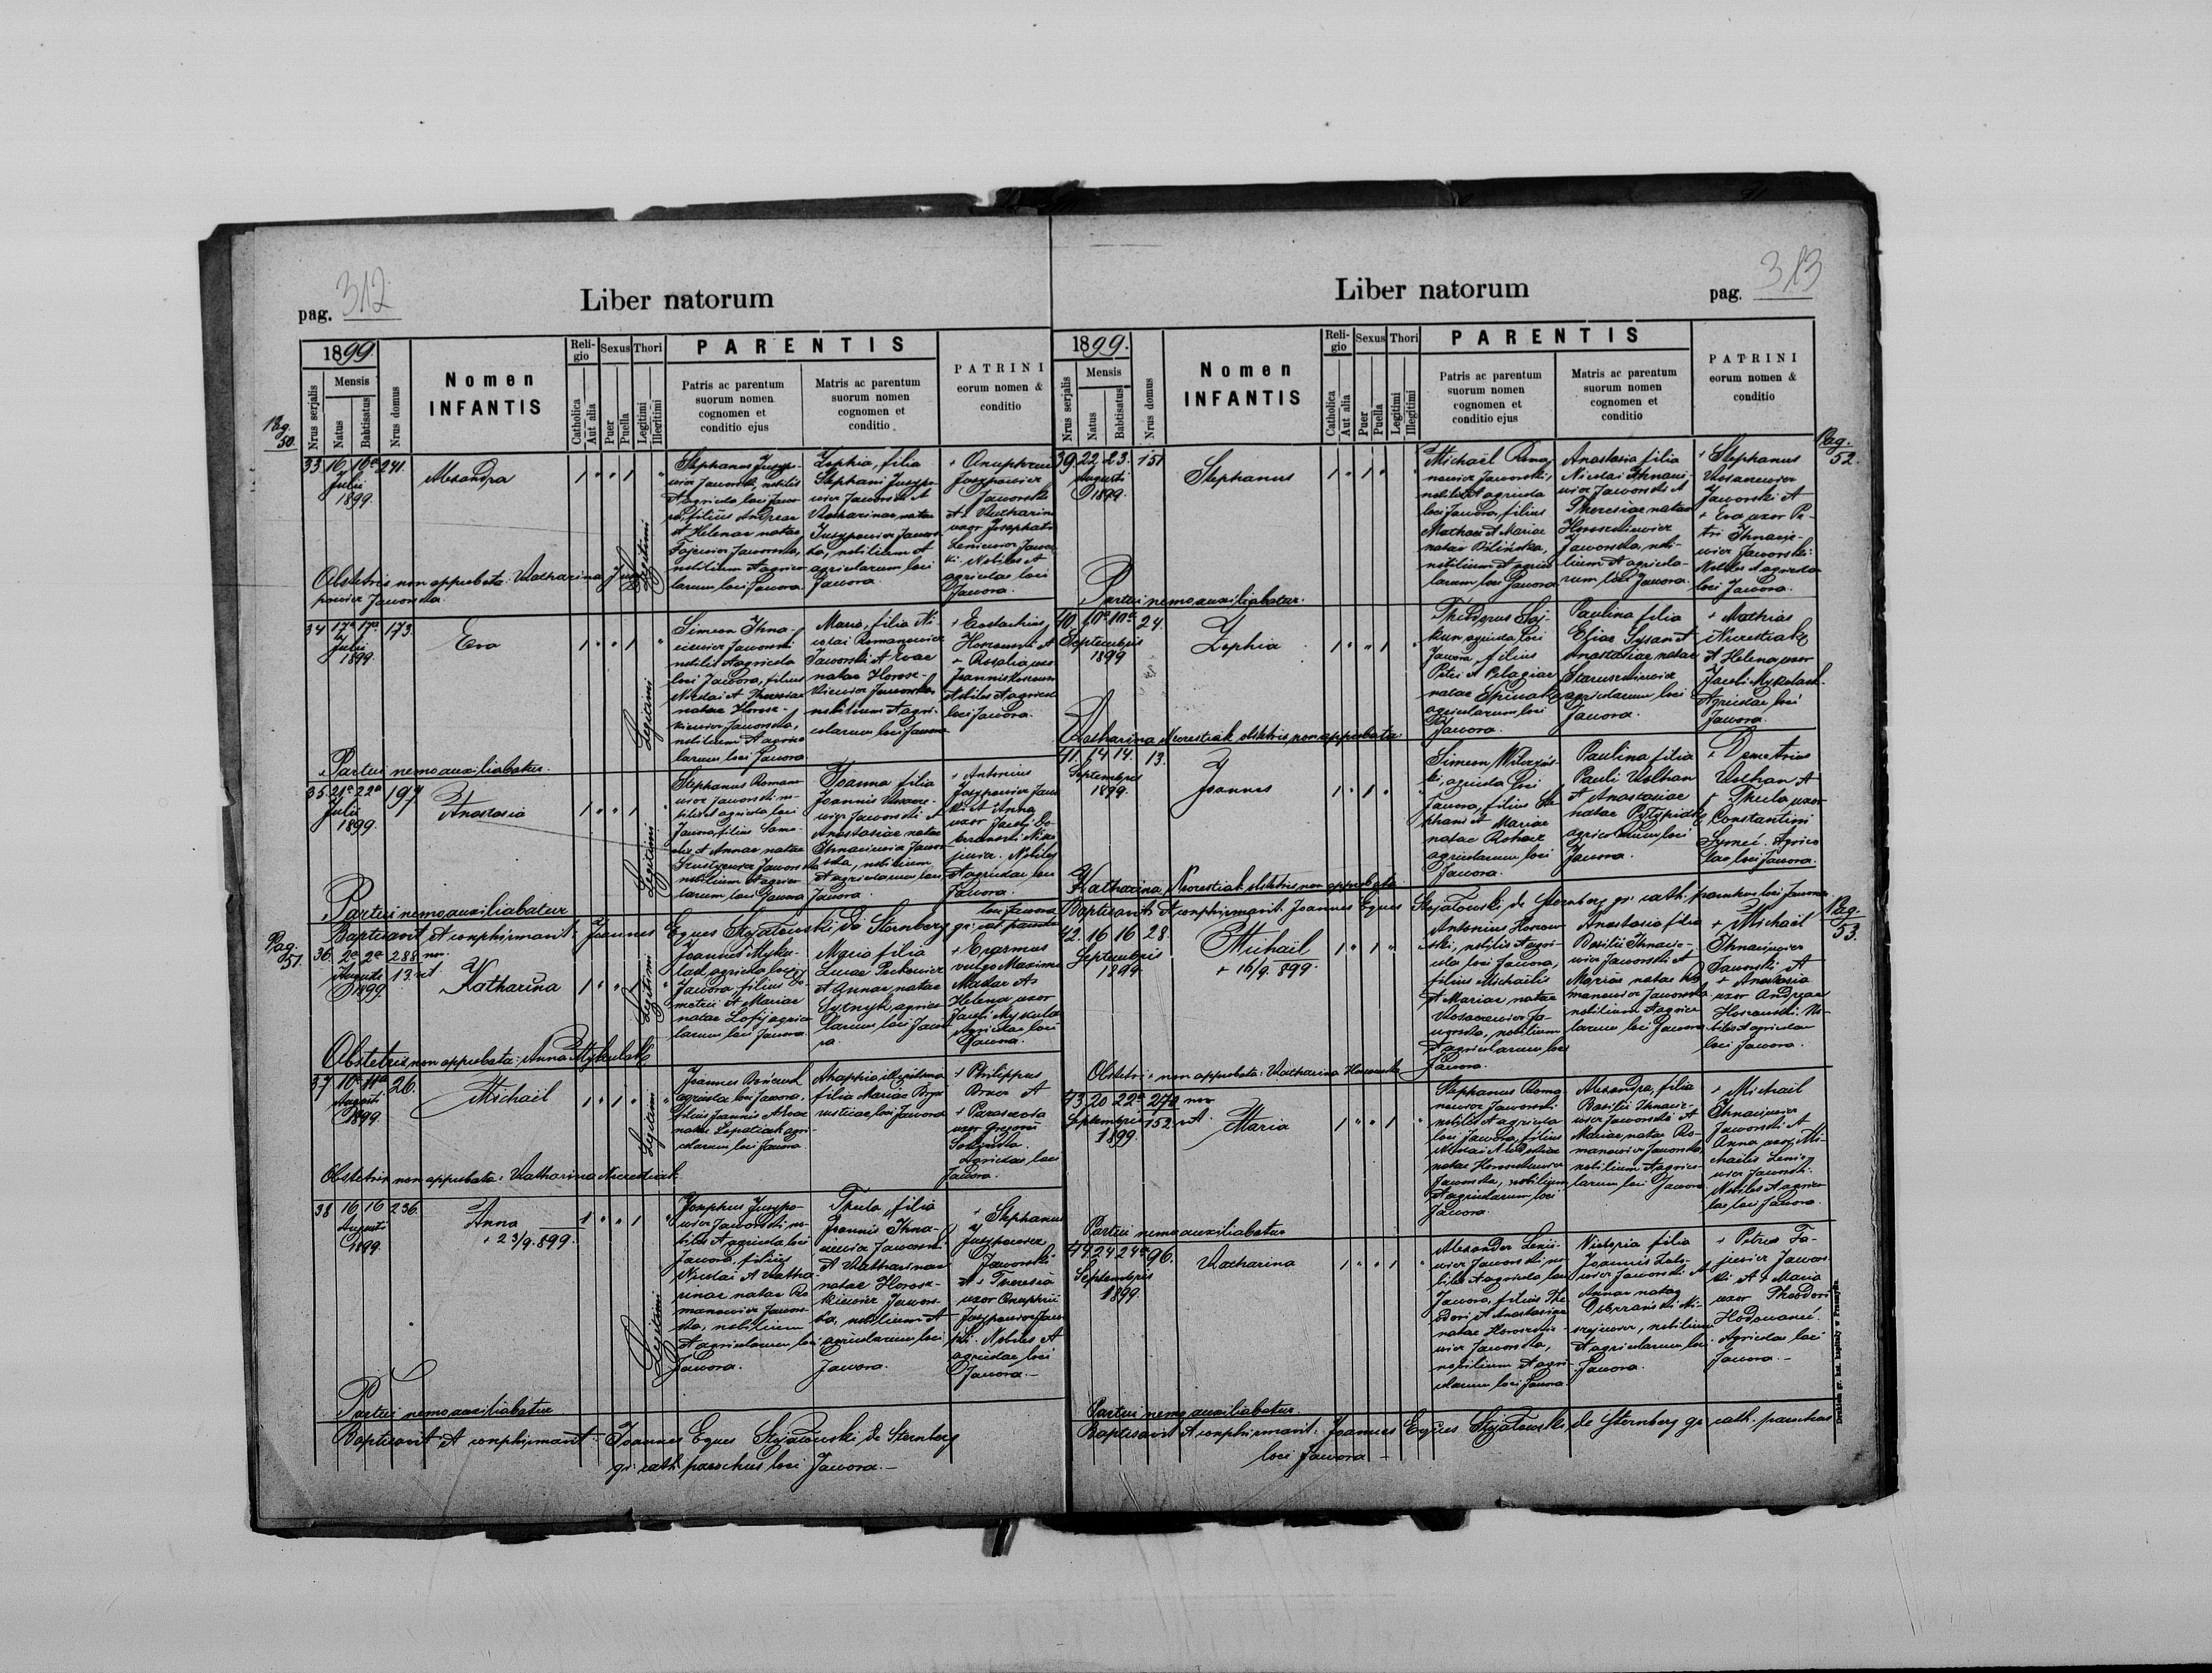 pag. 312
Liber natorum
1899.
Nrus serjalis
Mensis
Natus
Babtisatus
Nrus domus
Nomen
INFANTIS
Reli-
gio
Catholica
Aut alia
Sexus
Puer
Puella
Thori
Legitimi
Illegitimi
PARENTIS
Patris ac parentum
suorum nomen
cognomen et
conditio ejus
Matris ac parentum
suorum nomen
cognomen et
conditio
PATRINI
eorum nomen &
conditio
Pag.
50.
33 16 16a 241.
Julii
1899.
Alexandra
Legitimi
Stephanus Juzypo-
wicz Jaworski, nobilis
et agricola loci Jawo-
ra, filius Andreae
et Helenae natae
Fajewicz Jaworska,
nobilium et agrico-
larum loci Jawora.
Zophia, filia
Stephani Juzypo-
wicz Jaworski et
Katharinae natae
Juzypowicz Jawors-
ka, nobilium et
agricolarum loci
Jawora.
+ Onuphrius
Juzypowicz
Jaworski
et + Katharina
uxor Josaphati
Nobiles et
agricolae loci
Jawora.
Obstetrix non approbata: Katharina Juzy-
powicz Jaworska.
34 17a 17a 173.
Julii
1899.
Eva
Legitimi
Simeon Ihna-
ciewicz Jaworski
nobilis et agricola
loci Jawora, filius
Nicolai et Theresiae
natae Horosz-
kiewicz Jaworska,
nobilium et agrico-
larum loci Jawora.
Maria, filia Ni-
colai Romanowicz
Jaworski et Evae
natae Horosz-
kiewicz Jaworska
nobilium et agri-
colarum loci Jawora.
+ Eustachius
et
+ Rosalia uxor
Joannis
Nobiles et agricolae
loci Jawora.
Partui nemo auxiliabatur.
35 21a 22a 197
Julii
1899.
Anastasia
Legitimi
Stephanus Romano-
wicz Jaworski no-
bilis et agricola loci
Jawora, filius
et Annae natae
Jaworska
nobilium et agrico-
larum loci Jawora
Joanna filia
Joannis
Jaworski et
Anastasiae natae
Ihnaciewicz Jawor-
ska, nobilium
et agricolarum loci
Jawora.
+ Antonius
Juzypowicz Jawors-
ki et Anna
uxor Jacobi
Nobiles
et agricolae loci
Jawora.
Partui nemo auxiliabatur
Baptisavit et confirmavit: Joannes Eques Stojalowski de Sternberg gr. cat. parochus
loci Jawora
Pag.
51.
36. 2a 2a 288 nov.
Augusti 13. vet
1899.
Katharina
Legitimi
Joannes Myku-
lak, agricola loci
Jawora, filius De-
metrii et Mariae
natae Lofij agrico-
larum loci Jawora
Maria filia
Lucae
et Annae natae
Sytnyk, agrico-
larum loci Jawo-
ra.
+ Erasmus
vulgo Maximus
Makar et
Helena uxor
Jacobi Mykulak
Agricolae loci
Jawora.
Obstetrix non approbata: Anna Mykulak
37 10a 11a 26.
Augusti
1899.
Michaël
Legitimi
Joannes
agricola loci Jawora,
filius Joannis et Evae
natae agri-
colarum loci Jawora
Ahaphia illegitima
filia Mariae
rusticae loci Jawora
+ Philippus
et
+ Parasceva
uxor Gregorii
Agricolae loci
Jawora.
Obstetrix non approbata: Katharina Neorestiak
38 16 16 236.
Augusti
1899.
Anna
+ 23/9. 899.
Legitimi
Josephus Juzypo-
wicz Jaworski, no-
bilis et agricola loci
Jawora, filius
Nicolai et Katha-
rinae natae Ro-
manowicz Jawors-
ka, nobilium
et agricolarum loci
Jawora.
Thecla, filia
Joannis Ihna-
ciewicz Jaworski
et Katharinae
natae Horosz-
kiewicz Jawors-
ka, nobilium et
agricolarum loci
Jawora.
+ Stephanus
Juzypowicz
Jaworski
et + Theresia
uxor Onuphrii
Juzypowicz Jawor-
ski. Nobiles et
agricolae loci
Jawora.
Partui nemo auxiliabatur
Baptisavit et confirmavit: Joannes Eques Stojalowski de Sternberg
gr. cath. parochus loci Jawora.
Liber natorum
pag. 313
1899.
Nrus serjalis
Mensis
Natus
Babtisatus
Nrus domus
Nomen
INFANTIS
Reli-
gio
Catholica
Aut alia
Sexus
Puer
Puella
Thori
Legitimi
Illegitimi
PARENTIS
Patris ac parentum
suorum nomen
cognomen et
conditio ejus
Matris ac parentum
suorum nomen
cognomen et
conditio
PATRINI
eorum nomen &
conditio
Pag.
52.
39. 22. 23. 151
Augusti
1899.
Stephanus
Michaël Roma-
nowicz Jaworski,
nobilis et agricola
loci Jawora, filius
Mathaei et Mariae
natae Bilińska,
nobilium et agrico-
larum loci Jawora
Anastasia filia
Nicolai Ihnacie-
wicz Jaworski et
Theresiae natae
Horoszkiewicz
Jaworska, nobi-
lium et agricola-
rum loci Jawora.
+ Stephanus
Kosacewicz
Jaworski et
+ Eva uxor Pe-
tri Ihnacie-
wicz Jaworski.
Nobiles et agricolae
loci Jawora.
Partui nemo auxiliabatur.
40. 10a 10a 24.
Septembris
1899
Zophia
Theodorus
agricola loci
Jawora, filius
Petri et Pelagiae
natae
agricolarum loci
Jawora.
Paulina filia
Eliae et
Anastasiae natae
Staruszkiewicz
agricolarum loci
Jawora.
+ Mathias
Neorestiak
et Helena uxor
Jacobi Mykulak.
Agricolae loci
Jawora.
Katharina Neorestiak obstetrix non approbata
41. 14 14. 13.
Septembris
1899.
Joannes
Simeon Wilczyńs-
ki, agricola loci
Jawora, filius Ste-
phani et Mariae
natae
agricolarum loci
Jawora.
Paulina filia
Pauli Wolhan
et Anastasiae
natae
agricolarum loci
Jawora.
+ Demetrius
Wolhan et
+ Thecla uxor
Constantini
Agrico-
lae loci Jawora.
Katharina Neorestiak obstetrix non approbata
Baptisavit et confirmavit: Joannes Eques Stojalowski de Sternberg gr. cath. parochus loci Jawora.
Pag.
53.
42. 16 16 28.
Septembris
1899.
Michaël
+ 16/9. 899.
Antonius
nobilis et agri-
cola loci Jawora,
filius Michaëlis
et Mariae natae
Kosacewicz Ja-
worska, nobilium
et agricolarum loci
Jawora.
Anastasia filia
Basilii Ihnacie-
wicz Jaworski et
Mariae natae Ro-
manowicz Jaworska
nobilium et agrico-
larum loci Jawora
+ Michaël
Ihnaciewicz
Jaworski et
+ Anastasia
uxor Andreae
No-
biles et agricolae
loci Jawora.
Obstetrix non approbata: Katharina
43. 20 22a 272 nov
Septembris 152. vet
1899.
Maria
Stephanus Roma-
nowicz Jaworski
nobilis et agricola
loci Jawora, filius
Nicolai et
natae Horoszkiewicz
Jaworska, nobilium
et agricolarum loci
Jawora.
Alexandra, filia
Basilii Ihnacie-
wicz Jaworski et
Mariae natae Ro-
manowicz Jaworska
nobilium et agrico-
larum loci Jawora
+ Michaël
Ihnaciewicz
Jaworski et
Anna uxor Mi-
chaëlis
Jaworski.
Nobiles et agrico-
lae loci Jawora.
Partui nemo auxiliabatur
44. 24 24a 96.
Septembris
1899.
Katharina
Alexander
Jaworski, no-
bilis et agricola loci
Jawora, filius The-
odori et Anastasiae
natae Horoszkie-
wicz Jaworska,
nobilium et agri-
colarum loci Jawora.
Victoria filia
Joannis
Jaworski et
Annae natae
nobilium
et agricolarum loci
Jawora.
+ Petrus Fa-
jewicz Jawors-
ki et + Maria
uxor Theodori
Agricolae loci
Jawora.
Partui nemo auxiliabatur.
Baptisavit et confirmavit: Joannes Eques Stojalowski de Sternberg gr. cath. parochus
loci Jawora
Drukiem gr. kat. kapituły w Przemyślu